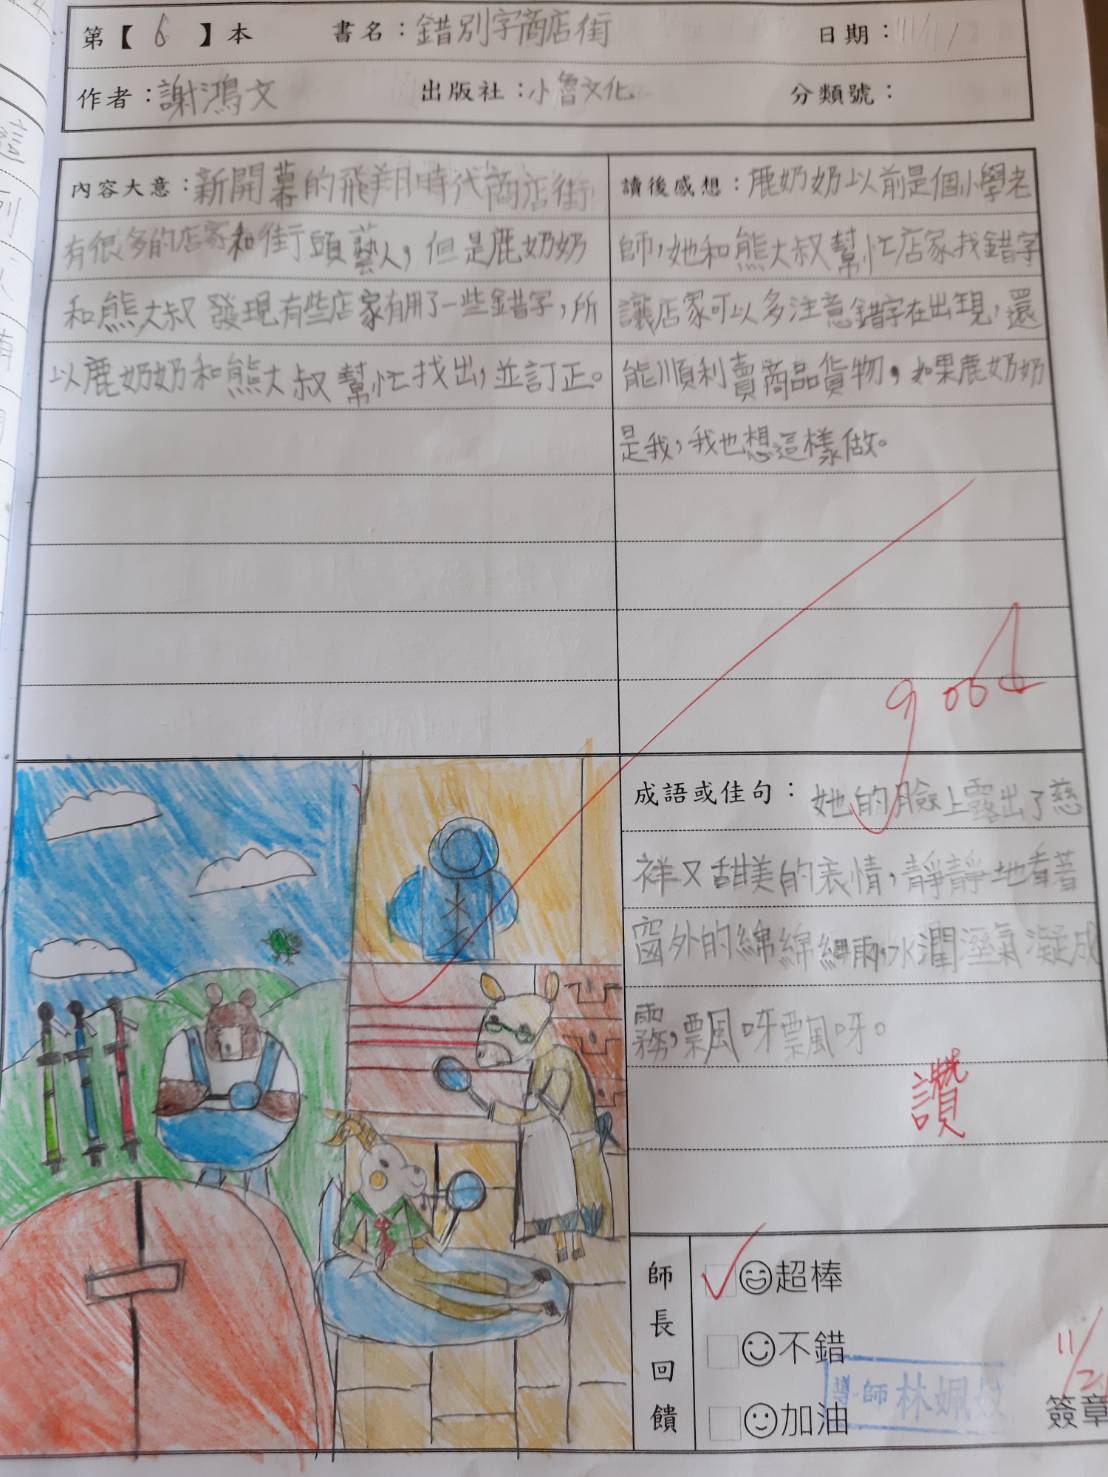 第【 6 】本 書名：錯別字商店街 日期：111/11/
作者：謝鴻文 出版社：小魯文化 分類號：
內容大意：新開幕的飛翔時代商店街
有很多的店家和街頭藝人，但是鹿奶奶
和熊大叔發現有些店家有用了一些錯字，所
以鹿奶奶和熊大叔幫忙找出，並訂正。
讀後感想：鹿奶奶以前是個小學老
師，她和熊大叔幫忙店家找錯字
讓店家可以多注意錯字在出現，還
能順利賣商品貨物，如果鹿奶奶
是我，我也想這樣做。
good
成語或佳句：她的臉上露出了慈
祥又甜美的表情，靜靜地看著
窗外的綿綿細雨，水潤溼氣凝成
霧，飄呀飄呀。
讚
師長回饋
超棒
不錯
加油
導師 林姵
11/2
簽章